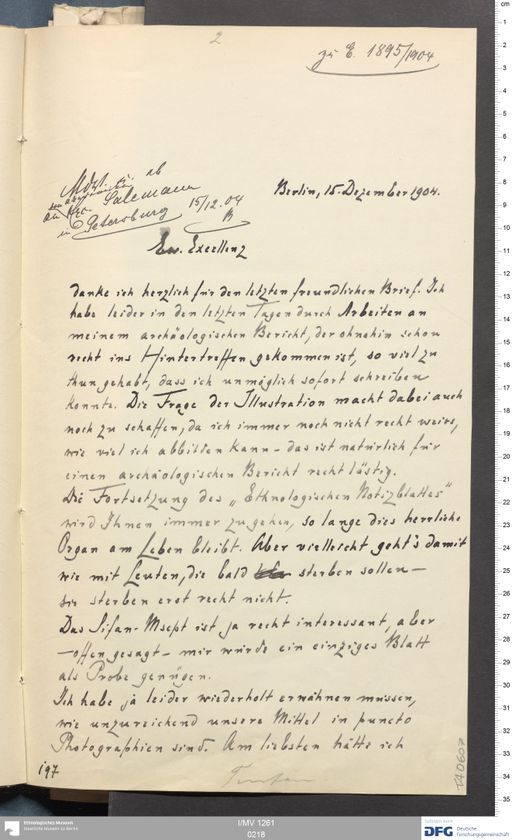 2
zu E. 1895/1904
Mdst. ab
an Exc. Salemann
in Petersburg 15/12.04
Berlin, 15. Dezember 1904.
Ew. Excellenz
danke ich herzlich für den letzten freundlichen Brief. Ich
habe leider in den letzten Tagen durch Arbeiten an
meinem archäologischen Bericht, der ohnehin schon
recht ins Hintertreffen gekommen ist, so viel zu
thun gehabt, dass ich unmöglich sofort schreiben
konnte. Die Frage der Illustration macht dabei auch
noch zu schaffen, da ich immer noch nicht recht weiss,
wie viel ich abbilden kann – das ist natürlich für
einen archäologischen Bericht recht lästig.
Die Fortsetzung des „Ethnologischen Notizblattes"
wird Ihnen immer zugehen, so lange dies herrliche
Organ am Leben bleibt. Aber vielleicht geht's damit
wie mit Leuten, die bald sterben sollen –
die sterben erst recht nicht.
Das Sifan-Mscpt ist ja recht interessant, aber
– offen gesagt – mir würde ein einziges Blatt
als Probe genügen.
Ich habe ja leider wiederholt erwähnen müssen,
wie unzureichend unsere Mittel in puncto
Photographien sind. Am liebsten hätte ich
Turfan
197
TA0607
Ethnologisches Museum
Staatliche Museen zu Berlin
I/MV 1261
0218
DFG Deutsche
Forschungsgemeinschaft